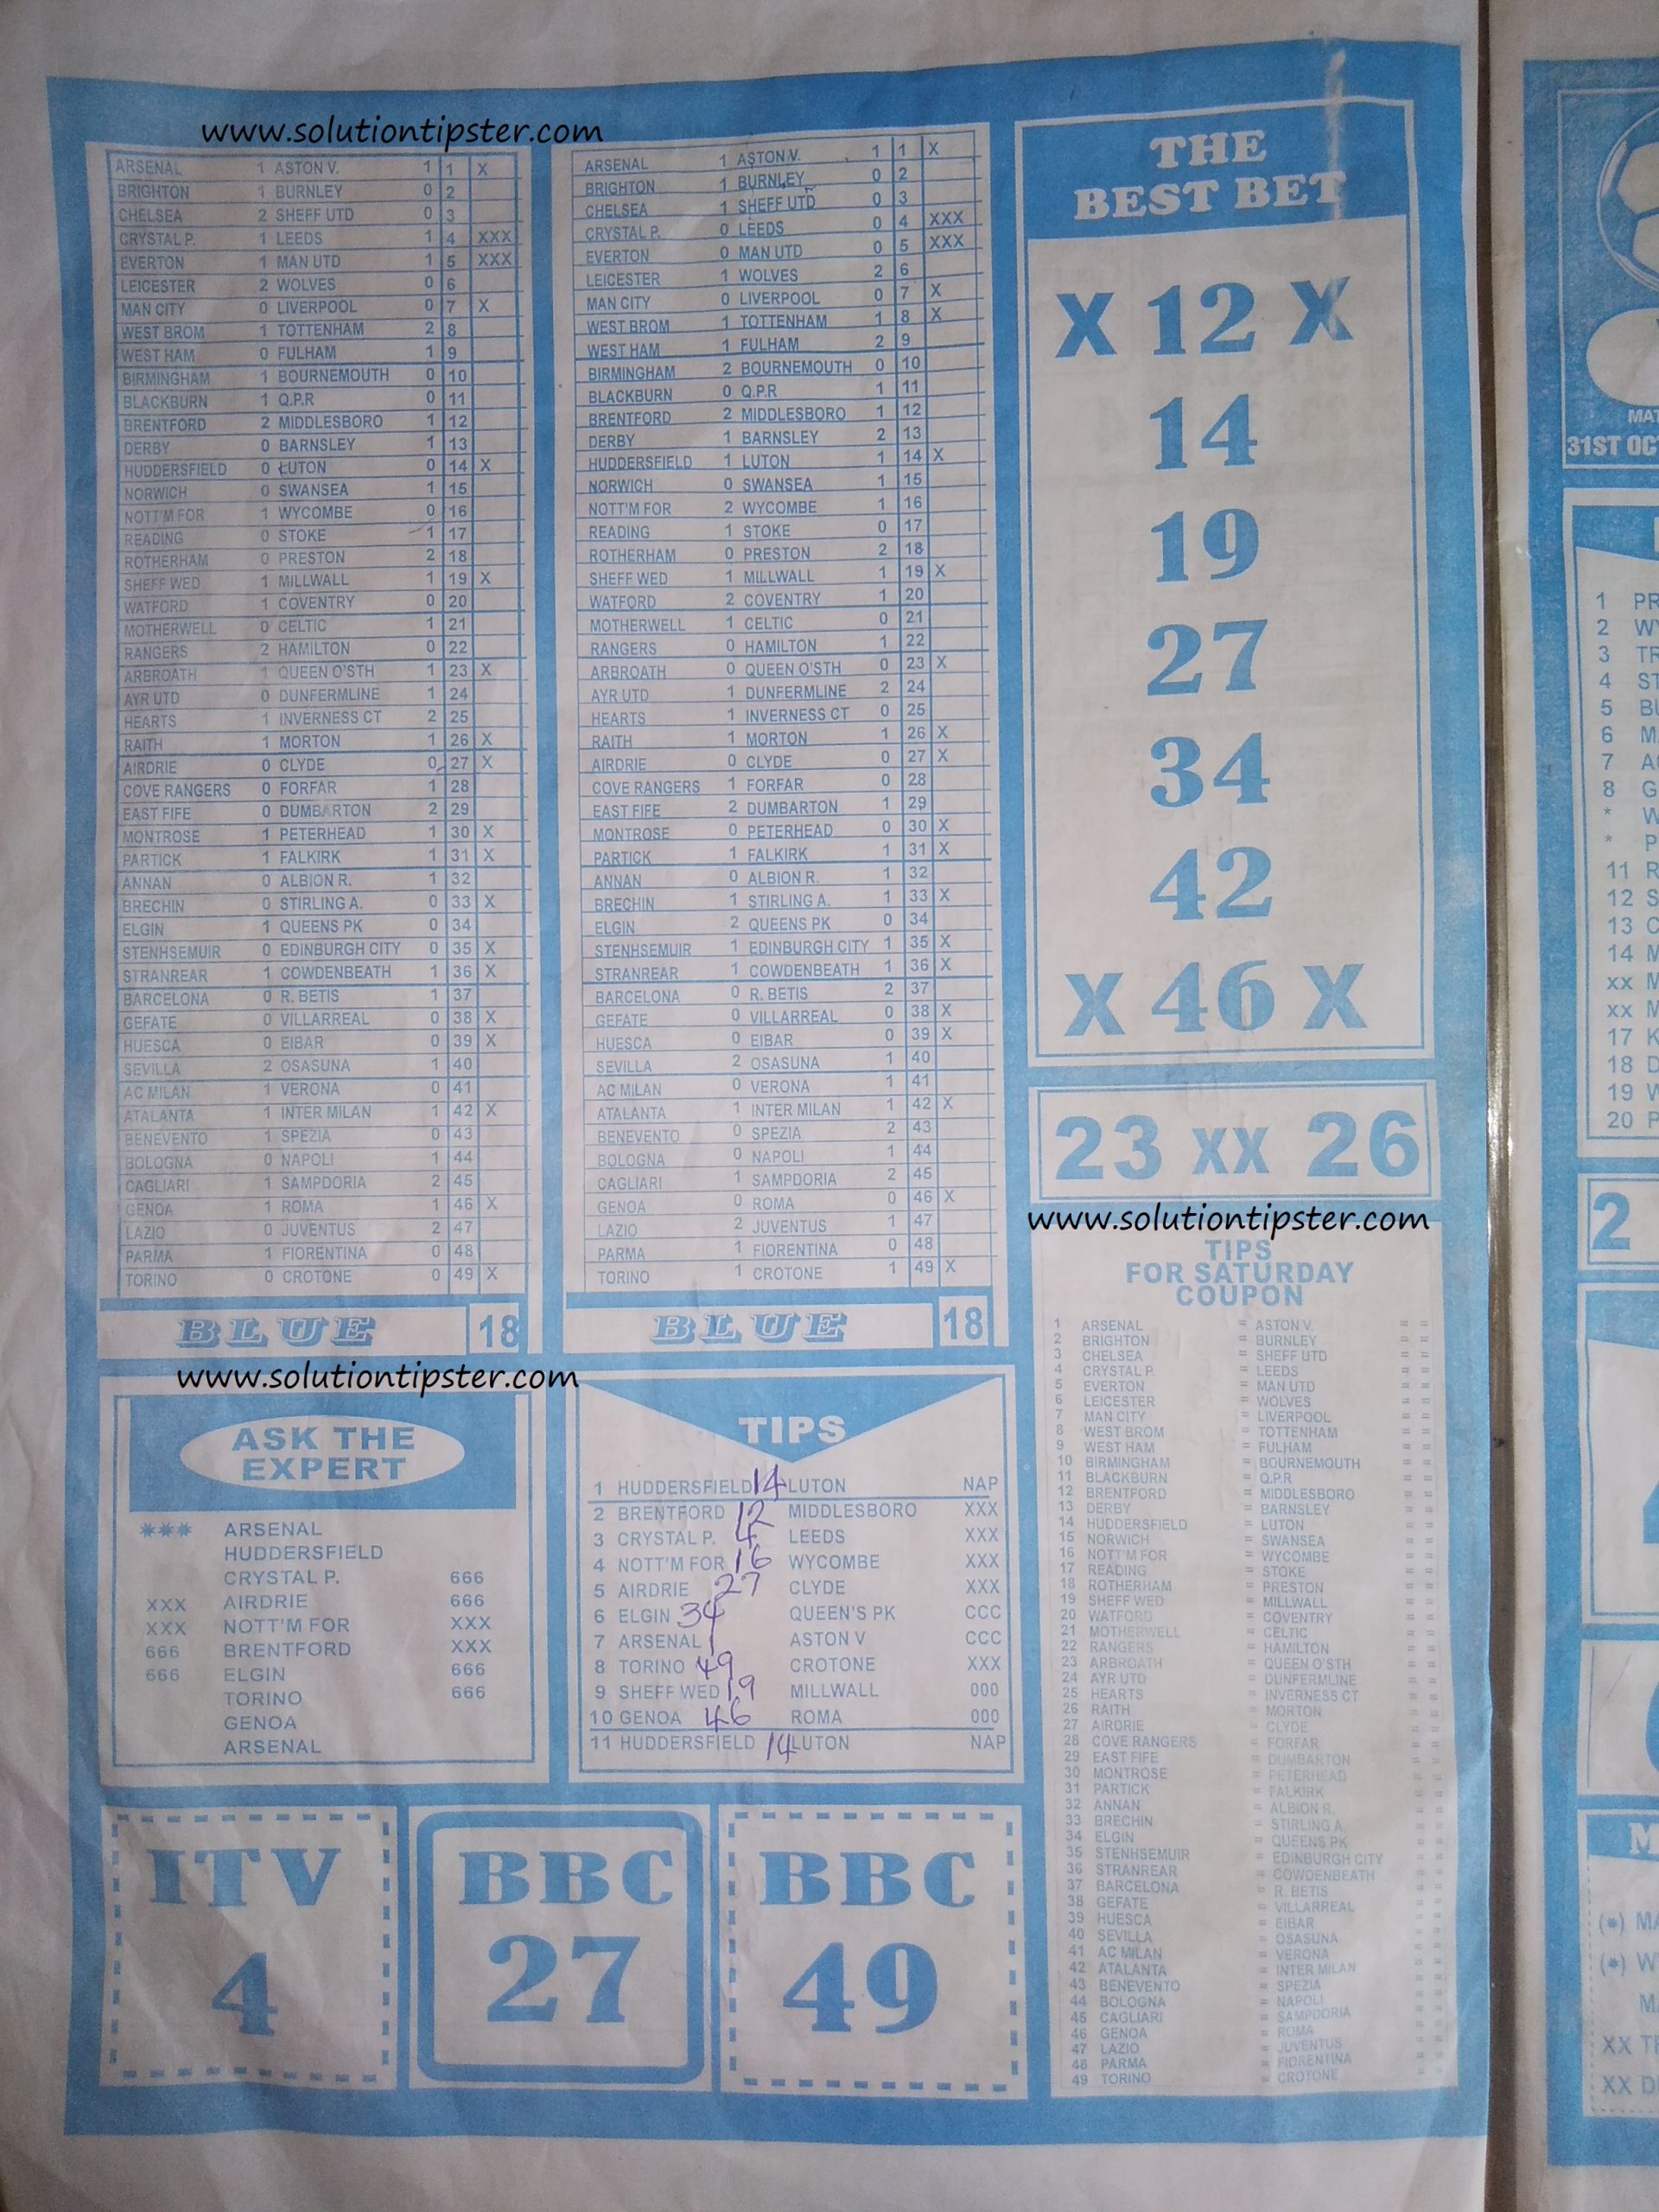 www.solutiontipster.com
ARSENAL 1 ASTON V. 1 1 X
BRIGHTON 1 BURNLEY 0 2
CHELSEA 2 SHEFF UTD 0 3
CRYSTAL P. 1 LEEDS 1 4 XXX
EVERTON 1 MAN UTD 1 5 XXX
LEICESTER 2 WOLVES 0 6
MAN CITY 0 LIVERPOOL 0 7 X
WEST BROM 1 TOTTENHAM 2 8
WEST HAM 0 FULHAM 1 9
BIRMINGHAM 1 BOURNEMOUTH 0 10
BLACKBURN 1 Q.P.R 0 11
BRENTFORD 2 MIDDLESBORO 1 12
DERBY 0 BARNSLEY 1 13
HUDDERSFIELD 0 LUTON 0 14 X
NORWICH 0 SWANSEA 1 15
NOTT'M FOR 1 WYCOMBE 0 16
READING 0 STOKE 1 17
ROTHERHAM 0 PRESTON 2 18
SHEFF WED 1 MILLWALL 1 19 X
WATFORD 1 COVENTRY 0 20
MOTHERWELL 0 CELTIC 1 21
RANGERS 2 HAMILTON 0 22
ARBROATH 1 QUEEN O'STH 1 23 X
AYR UTD 0 DUNFERMLINE 1 24
HEARTS 1 INVERNESS CT 2 25
RAITH 1 MORTON 1 26 X
AIRDRIE 0 CLYDE 0 27 X
COVE RANGERS 0 FORFAR 1 28
EAST FIFE 0 DUMBARTON 2 29
MONTROSE 1 PETERHEAD 1 30 X
PARTICK 1 FALKIRK 1 31 X
ANNAN 0 ALBION R. 1 32
BRECHIN 0 STIRLING A. 0 33 X
ELGIN 1 QUEENS PK 0 34
STENHSEMUIR 0 EDINBURGH CITY 0 35 X
STRANREAR 1 COWDENBEATH 1 36 X
BARCELONA 0 R. BETIS 1 37
GEFATE 0 VILLARREAL 0 38 X
HUESCA 0 EIBAR 0 39 X
SEVILLA 2 OSASUNA 1 40
AC MILAN 1 VERONA 0 41
ATALANTA 1 INTER MILAN 1 42 X
BENEVENTO 1 SPEZIA 0 43
BOLOGNA 0 NAPOLI 1 44
CAGLIARI 1 SAMPDORIA 2 45
GENOA 1 ROMA 1 46 X
LAZIO 0 JUVENTUS 2 47
PARMA 1 FIORENTINA 0 48
TORINO 0 CROTONE 0 49 X
BLUE 18
ARSENAL 1 ASTON V. 1 1 X
BRIGHTON 1 BURNLEY 0 2
CHELSEA 1 SHEFF UTD 0 3
CRYSTAL P. 0 LEEDS 0 4 XXX
EVERTON 0 MAN UTD 0 5 XXX
LEICESTER 1 WOLVES 2 6
MAN CITY 0 LIVERPOOL 0 7 X
WEST BROM 1 TOTTENHAM 1 8 X
WEST HAM 1 FULHAM 2 9
BIRMINGHAM 2 BOURNEMOUTH 0 10
BLACKBURN 0 Q.P.R 1 11
BRENTFORD 2 MIDDLESBORO 1 12
DERBY 1 BARNSLEY 2 13
HUDDERSFIELD 1 LUTON 1 14 X
NORWICH 0 SWANSEA 1 15
NOTT'M FOR 2 WYCOMBE 1 16
READING 1 STOKE 0 17
ROTHERHAM 0 PRESTON 2 18
SHEFF WED 1 MILLWALL 1 19 X
WATFORD 2 COVENTRY 1 20
MOTHERWELL 1 CELTIC 0 21
RANGERS 0 HAMILTON 1 22
ARBROATH 0 QUEEN O'STH 0 23 X
AYR UTD 1 DUNFERMLINE 2 24
HEARTS 1 INVERNESS CT 0 25
RAITH 1 MORTON 1 26 X
AIRDRIE 0 CLYDE 0 27 X
COVE RANGERS 1 FORFAR 0 28
EAST FIFE 2 DUMBARTON 1 29
MONTROSE 0 PETERHEAD 0 30 X
PARTICK 1 FALKIRK 1 31 X
ANNAN 0 ALBION R. 1 32
BRECHIN 1 STIRLING A. 1 33 X
ELGIN 2 QUEENS PK 0 34
STENHSEMUIR 1 EDINBURGH CITY 1 35 X
STRANREAR 1 COWDENBEATH 1 36 X
BARCELONA 0 R. BETIS 2 37
GEFATE 0 VILLARREAL 0 38 X
HUESCA 0 EIBAR 0 39 X
SEVILLA 2 OSASUNA 1 40
AC MILAN 0 VERONA 1 41
ATALANTA 1 INTER MILAN 1 42 X
BENEVENTO 0 SPEZIA 2 43
BOLOGNA 0 NAPOLI 1 44
CAGLIARI 1 SAMPDORIA 2 45
GENOA 0 ROMA 0 46 X
LAZIO 2 JUVENTUS 1 47
PARMA 1 FIORENTINA 0 48
TORINO 1 CROTONE 1 49 X
BLUE 18
THE
BEST BET
X 12 X
14
19
27
34
42
X 46 X
23 XX 26
www.solutiontipster.com
TIPS
FOR SATURDAY
COUPON
1 ARSENAL = ASTON V. = =
2 BRIGHTON = BURNLEY = =
3 CHELSEA = SHEFF UTD = =
4 CRYSTAL P. = LEEDS = =
5 EVERTON = MAN UTD = =
6 LEICESTER = WOLVES = =
7 MAN CITY = LIVERPOOL = =
8 WEST BROM = TOTTENHAM = =
9 WEST HAM = FULHAM = =
10 BIRMINGHAM = BOURNEMOUTH = =
11 BLACKBURN = Q.P.R = =
12 BRENTFORD = MIDDLESBORO = =
13 DERBY = BARNSLEY = =
14 HUDDERSFIELD = LUTON = =
15 NORWICH = SWANSEA = =
16 NOTT'M FOR = WYCOMBE = =
17 READING = STOKE = =
18 ROTHERHAM = PRESTON = =
19 SHEFF WED = MILLWALL = =
20 WATFORD = COVENTRY = =
21 MOTHERWELL = CELTIC = =
22 RANGERS = HAMILTON = =
23 ARBROATH = QUEEN O'STH = =
24 AYR UTD = DUNFERMLINE = =
25 HEARTS = INVERNESS CT = =
26 RAITH = MORTON = =
27 AIRDRIE = CLYDE = =
28 COVE RANGERS = FORFAR = =
29 EAST FIFE = DUMBARTON = =
30 MONTROSE = PETERHEAD = =
31 PARTICK = FALKIRK = =
32 ANNAN = ALBION R. = =
33 BRECHIN = STIRLING A. = =
34 ELGIN = QUEENS PK = =
35 STENHSEMUIR = EDINBURGH CITY = =
36 STRANREAR = COWDENBEATH = =
37 BARCELONA = R. BETIS = =
38 GEFATE = VILLARREAL = =
39 HUESCA = EIBAR = =
40 SEVILLA = OSASUNA = =
41 AC MILAN = VERONA = =
42 ATALANTA = INTER MILAN = =
43 BENEVENTO = SPEZIA = =
44 BOLOGNA = NAPOLI = =
45 CAGLIARI = SAMPDORIA = =
46 GENOA = ROMA = =
47 LAZIO = JUVENTUS = =
48 PARMA = FIORENTINA = =
49 TORINO = CROTONE = =
www.solutiontipster.com
ASK THE
EXPERT
*** ARSENAL
HUDDERSFIELD
CRYSTAL P. 666
XXX AIRDRIE 666
XXX NOTT'M FOR XXX
666 BRENTFORD XXX
666 ELGIN 666
TORINO 666
GENOA
ARSENAL
TIPS
1 HUDDERSFIELD 14 LUTON NAP
2 BRENTFORD 12 MIDDLESBORO XXX
3 CRYSTAL P. 4 LEEDS XXX
4 NOTT'M FOR 16 WYCOMBE XXX
5 AIRDRIE 27 CLYDE XXX
6 ELGIN 34 QUEEN'S PK CCC
7 ARSENAL 1 ASTON V CCC
8 TORINO 49 CROTONE XXX
9 SHEFF WED 19 MILLWALL 000
10 GENOA 46 ROMA 000
11 HUDDERSFIELD 14 LUTON NAP
ITV
4
BBC
27
BBC
49
31ST OC
1 PR
2 WY
3 TR
4 ST
5 BU
6 M
7 A
8 G
* W
* P
11 R
12 S
13 C
14 M
XX M
XX M
17 K
18 D
19 W
20 P
2
(*) MA
(*) W
MA
XX TH
XX D